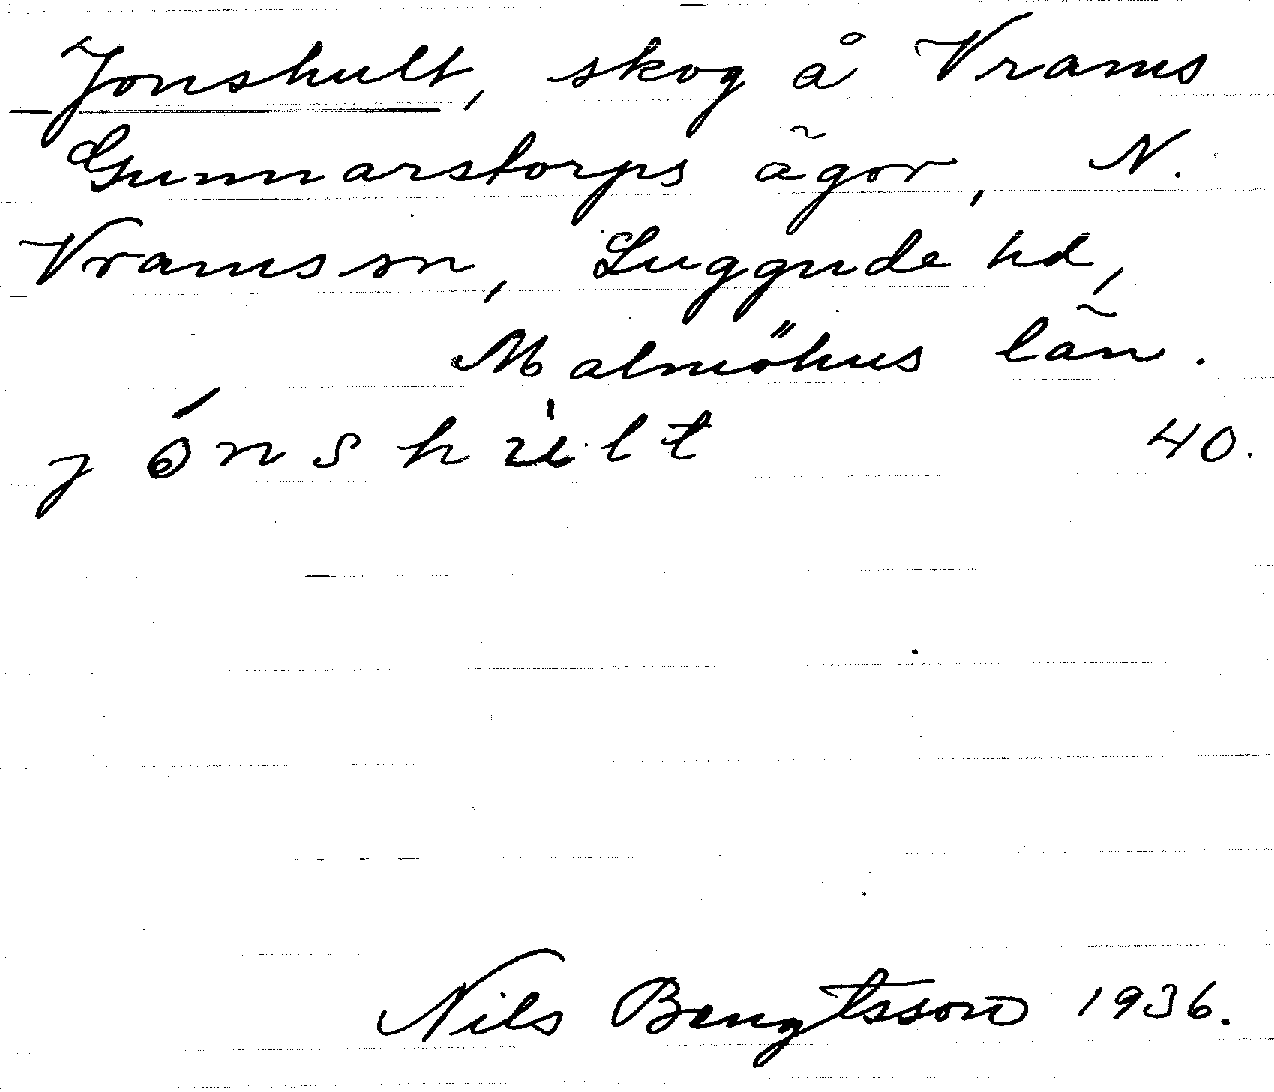 Jonshult, skog å Vrams
Gunnarstorps ägor, N.
Vrams sn, Luggude hd,
Malmöhus län.
jónshu̇lt 40.
Nils Bengtsson 1936.